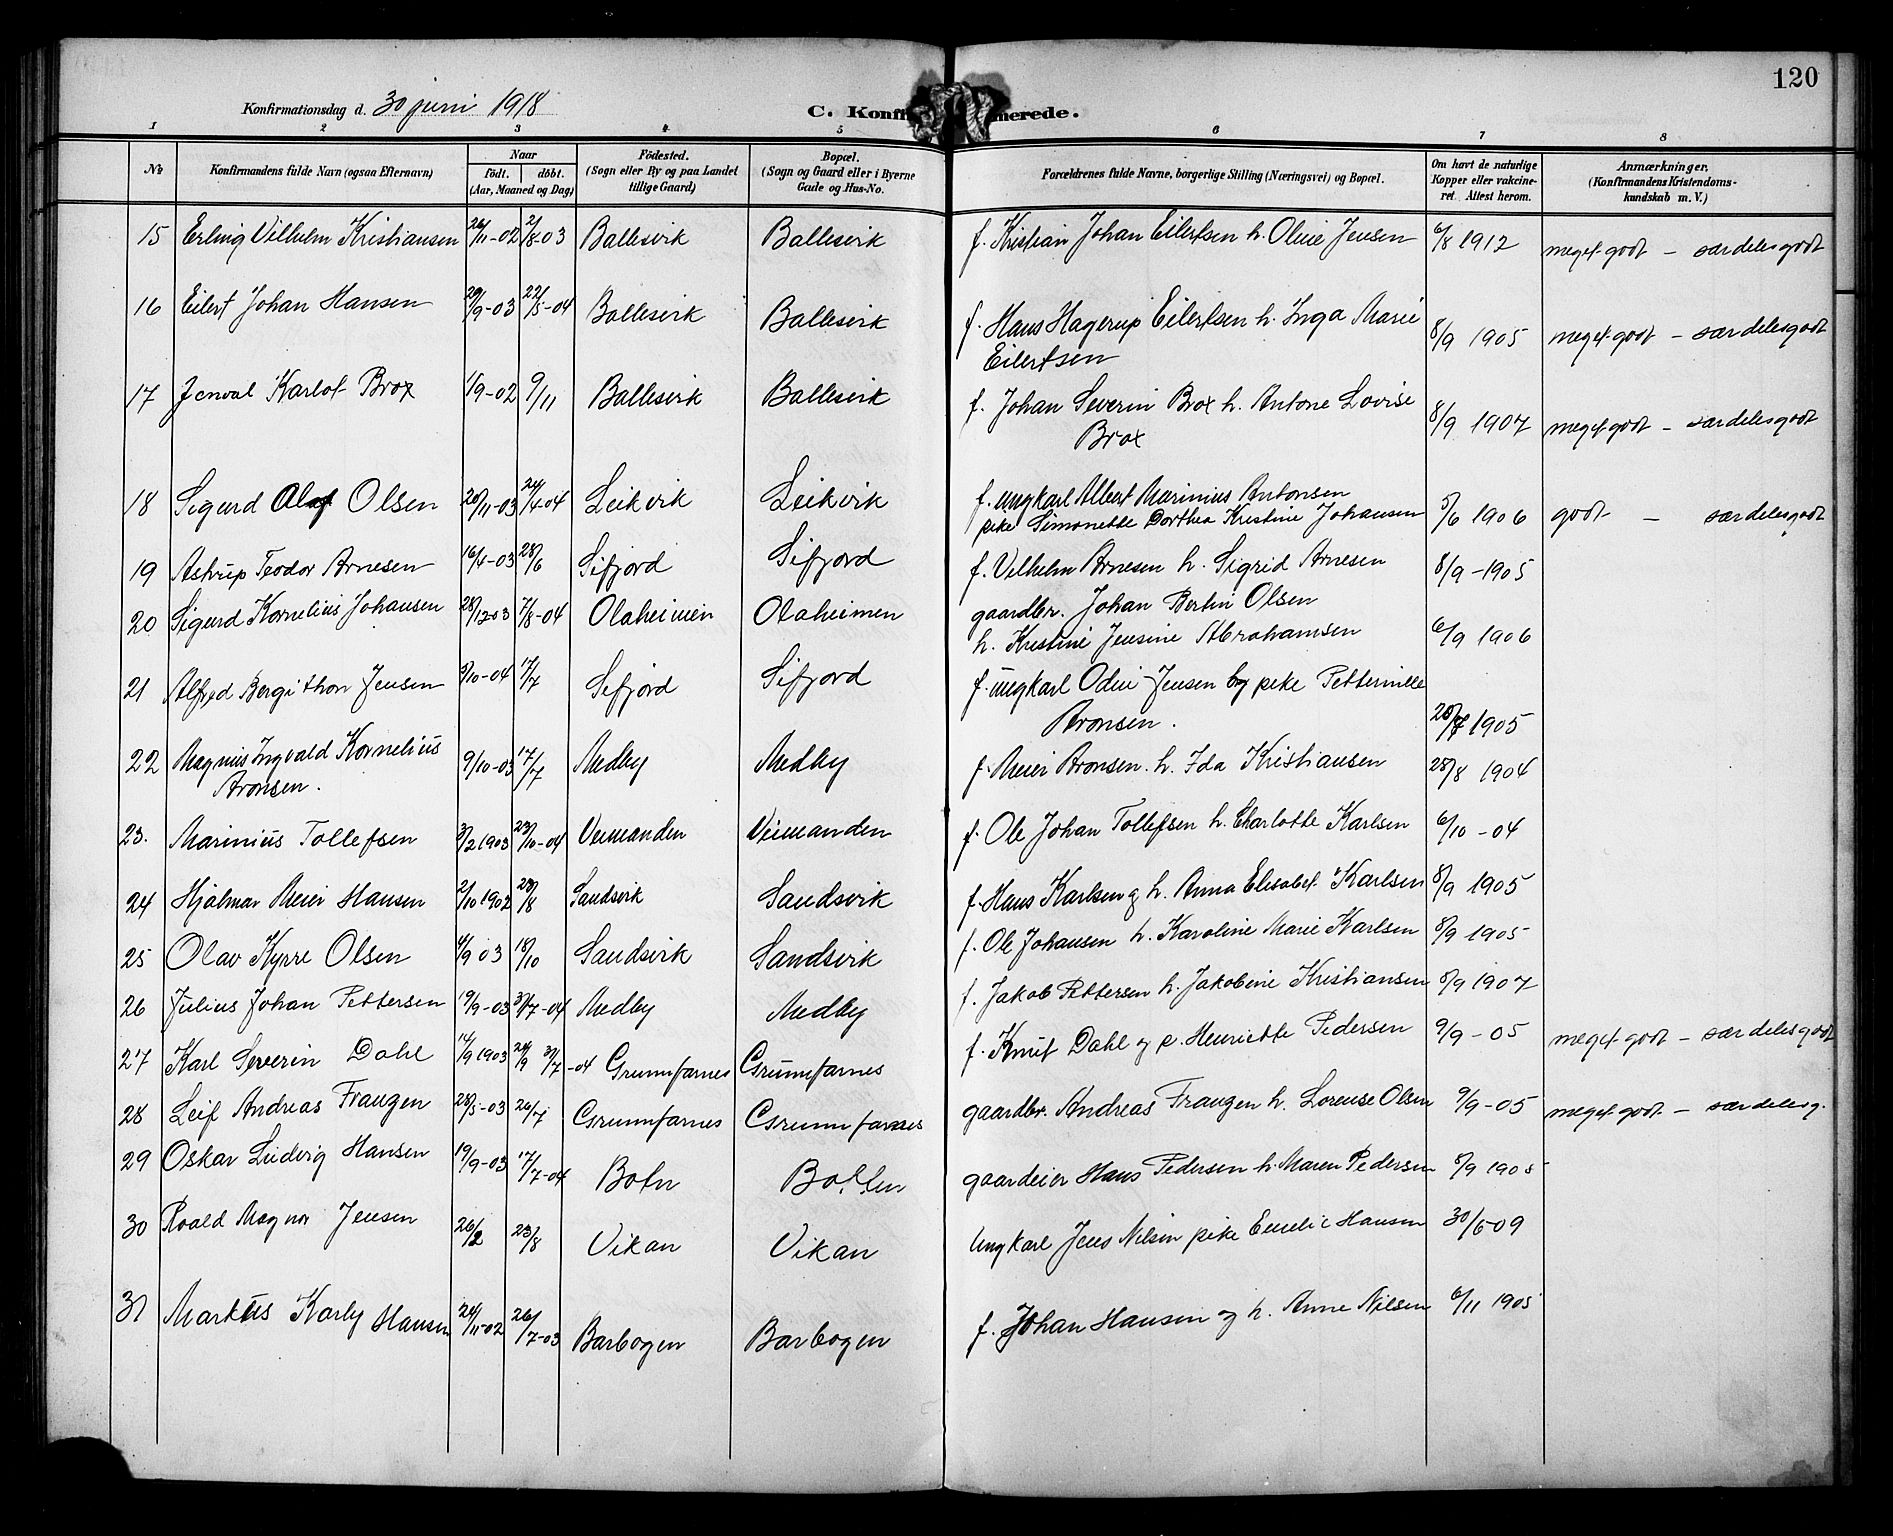 120
Konfirmationsdag d. 30 juni 1918
C. Konfi merede.
1 2 3 4 5 6 7 8
No Konfirmandens fulde Navn (ogsaa Efternavn) Naar födt. döbt. (Aar, Maaned og Dag) Födested. (Sogn eller By og paa Landet tillige Gaard) Bopæl. (Sogn og Gaard eller i Byerne Gade og Hus-No. Forældrenes fulde Navne, borgerlige Stilling (Næringsvei) og Bopæl. Om havt de naturlige Kopper eller vakcineret. Attest herom. Anmærkninger, (Konfirmandens Kristendomskundskab m. V.)
15 Erling Vilhelm Kristiansen 26/11-02 2/8-03 Ballesvik Ballesvik f. Kristian Johan Eilertsen h. Oline Jensen 6/8 1912 meget godt - særdeles godt
16 Eilert Johan Hansen 29/9-03 22/5-04 Ballesvik Ballesvik f. Hans Hagerup Eilertsen h. Inga Marie 8/9 1905 meget godt - særdeles godt
Eilertsen
17 Jenval Karlot Brox 1/9-02 9/11 Ballesvik Ballesvik f. Johan Severin Brox h. Antone Lovise 8/9 1907 meget godt - særdeles godt
Brox
18 Sigurd Olaf Olsen 20/11-03 24/4-04 Leikvik Leikvik f. ungkarl Albert Marinius Antonsen
pike Simonette Dorthea Kristine Johansen 5/6 1906 godt - særdeles godt
19 Astrup Teodor Arnesen 16/4-03 28/6 Sifjord Sifjord f. Vilhelm Arnesen h. Sigrid Arnesen 8/9-1905
20 Sigurd Kornelius Johansen 28/12-03 7/8-04 Olaheimen Olaheimen gaardbr. Johan Bertin Olsen
h. Kristine Jensine Abrahamsen 6/9 1906
21 Alfred Bergithon Jensen 3/10-04 17/7 Sifjord Sifjord f. ungkarl Odin Jensen og pike Petterville
Aronsen. 1905
22 Magnus Ingvald Kornelius 9/10-03 17/7 Medby Medby f. Meier Aronsen. h. Ida Kristiansen 28/8 1904
Aronsen.
23. Marinius Tollefsen 3/2 1903 23/10-04 Veimanden Veimanden f. Ole Johan Tollefsen h. Charlotte Karlsen 6/10-04
24 Hjalmar Meier Hansen 2/10 1902 28/8 Sandsvik Sandsvik f. Hans Karlsen og h. Anna Elisabet Karlsen 8/9 1905
25 Olav Kyrre Olsen 4/9 03 18/10 Sandsvik Sandsvik f. Ole Johansen h. Karoline Marie Karlsen 8/9 1905
26 Julius Johan Pettersen 19/9-03 31/7-04 Medby Medby f. Jakob Pettersen h. Jakobine Kristiansen 8/9 1907
27 Karl Severin Dahl 14/9 1903 24/9 31/7-04 Grunnfarnes Grunnfarnes f. Knut Dahl og p. Henriette Pedersen 9/9-05 meget godt - særdeles godt
28 Leif Andreas Frantzen 28/5-03 26/7 Grunnfarnes Grunnfarnes gaardbr. Andreas Frantzen h. Lorense Olsen 9/9-05 meget godt - særdeles g.
29 Oskar Ludvig Hansen 19/9-03 17/7-04 Botn Botten gaardeier Hans Pedersen h. Maren Pedersen 8/9 1905
30 Roald Magnor Jensen 26/2 23/8 Vikan Vikan Ungkarl Jens Nilsen pike Emelie Hansen 30/6-09
31 Markus Karly Hansen 24/11-02 26/7-03 Barbogen Barbogen f. Johan Hansen og h. Anne Nilsen 6/11 1905